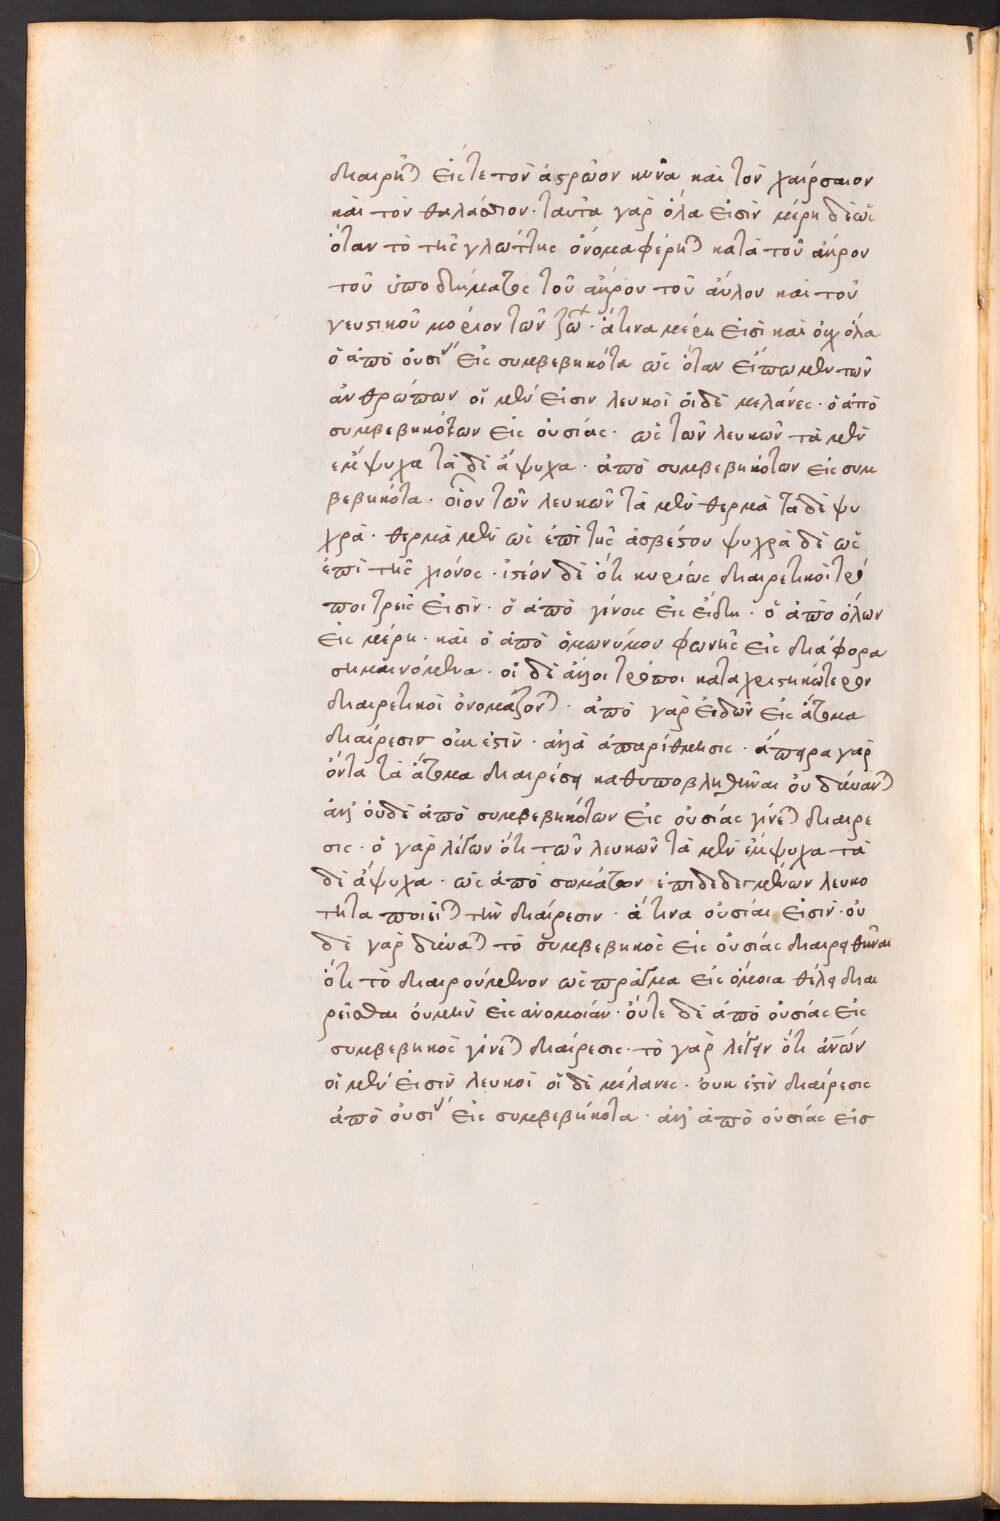 διαιρῆται εἴς τε τὸν ἀστρῶον κύνα καὶ τὸν χαιρσαιον
καὶ τὸν θαλάσσιον· ταῦτα γὰρ ὅλα εἰσὶν μέρη δὲ ὡς
ὅταν τὸ τῆς γλώττης ὄνομα φέρηται κατὰ τοῦ ἄκρου
τοῦ ὑποδήματος τοῦ ἄκρου τοῦ αὐλοῦ καὶ τοῦ
γευστικοῦ μορίου τῶν ζώων· ἅτινα μέρη εἰσὶ καὶ οὐχ ὅλα
ὁ ἀπὸ οὐσιῶν εἰς συμβεβηκότα ὡς ὅταν εἴπω μὲν τῶν
ἀνθρώπων οἱ μέν εἰσιν λευκοὶ οἱ δὲ μελάνες· ὁ ἀπὸ
συμβεβηκότων εἰς οὐσίας· ὡς τῶν λευκῶν τὰ μὲν
ἔμψυχα τὰ δὲ ἄψυχα· ἀπὸ συμβεβηκότων εἰς συμ
βεβηκότα· οἷον τῶν λευκῶν τὰ μὲν θερμὰ τὰ δὲ ψυ
χρὰ· θερμὰ μὲν ὡς ἐπὶ τῆς ἀσβέστου ψυχρὰ δὲ ὡς
ἐπὶ τῆς χιόνος· ἰστέον δὲ ὅτι κυρίως διαιρετικοὶ τρό
ποι τρεῖς εἰσὶν· ὁ ἀπὸ γένους εἰς εἴδη· ὁ ἀπὸ ὅλων
εἰς μέρη· καὶ ὁ ἀπὸ ὁμωνύμου φωνῆς εἰς διάφορα
σημαινόμενα· οἱ δὲ ἄλλοι τρόποι καταχρηστικώτερον
διαιρετικοὶ ὀνομάζονται· ἀπὸ γὰρ εἰδῶν εἰς ἄτομα
διαίρεσιν οὐκ ἐστὶν· ἀλλὰ ἀπαρίθμησις· ἄπειρα γὰρ
ὄντα τὰ ἄτομα διαιρέσει καθυποβληθῆναι οὐ δύνανται
ἀλλ' οὐδὲ ἀπὸ συμβεβηκότων εἰς οὐσίας γίνεται διαίρε
σις· ὁ γὰρ λέγων ὅτι τῶν λευκῶν τὰ μὲν ἔμψυχα τὰ
δὲ ἄψυχα· ὡς ἀπὸ σωμάτων ἐπιδεδεγμένων λευκό
τητα ποιεῖται τὴν διαίρεσιν· ἅτινα οὐσίαι εἰσὶν· οὐ
δὲ γὰρ δύναται τὸ συμβεβηκὸς εἰς οὐσίας διαιρεθῆναι
ὅτι τὸ διαιρούμενον ὡς πρᾶγμα εἰς ὅμοια θέλει διαι
ρεῖσθαι οὐμὴν εἰς ἀνομοίαν· οὔτε δὲ ἀπὸ οὐσίας εἰς
συμβεβηκὸς γίνεται διαίρεσις· τὸ γὰρ λέγειν ὅτι ἀνῶν
οἱ μέν εἰσὶν λευκοὶ οἱ δὲ μέλανες· οὐκ ἐστὶν διαίρεσις
ἀπὸ οὐσιῶν εἰς συμβεβηκότα· ἀλλ' ἀπὸ οὐσίας εἰσ